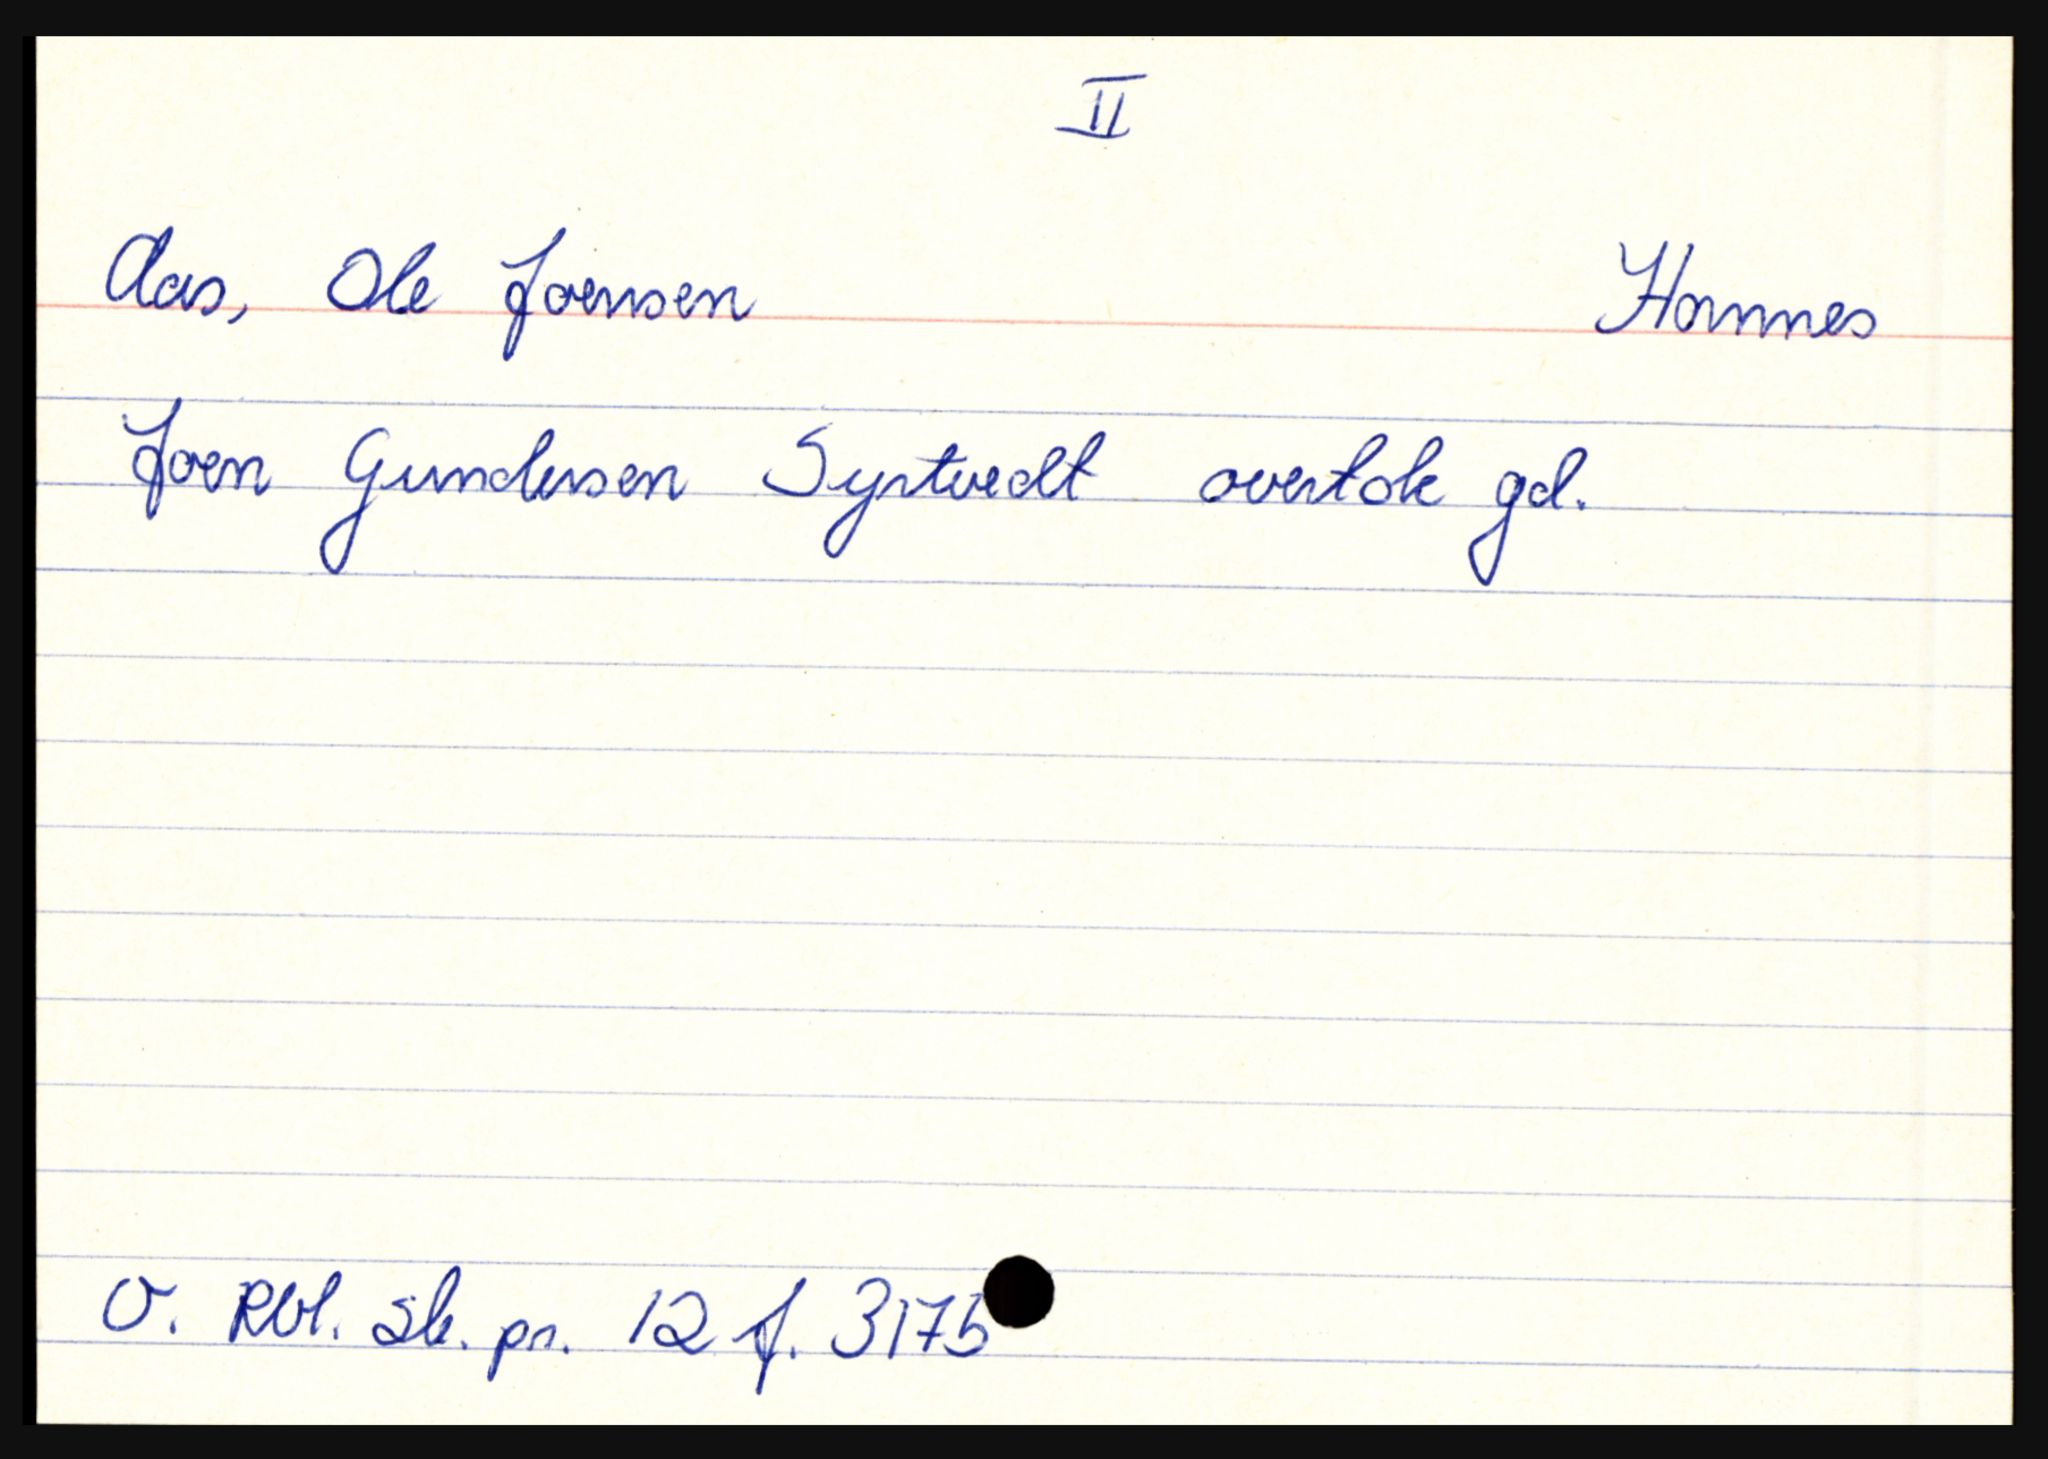 II
Aas, Ole Joensen Hornnes
Joen Gundersen Syrtvedt overtok gd.
V. Rbl. sk. pr. 12 f. 317b